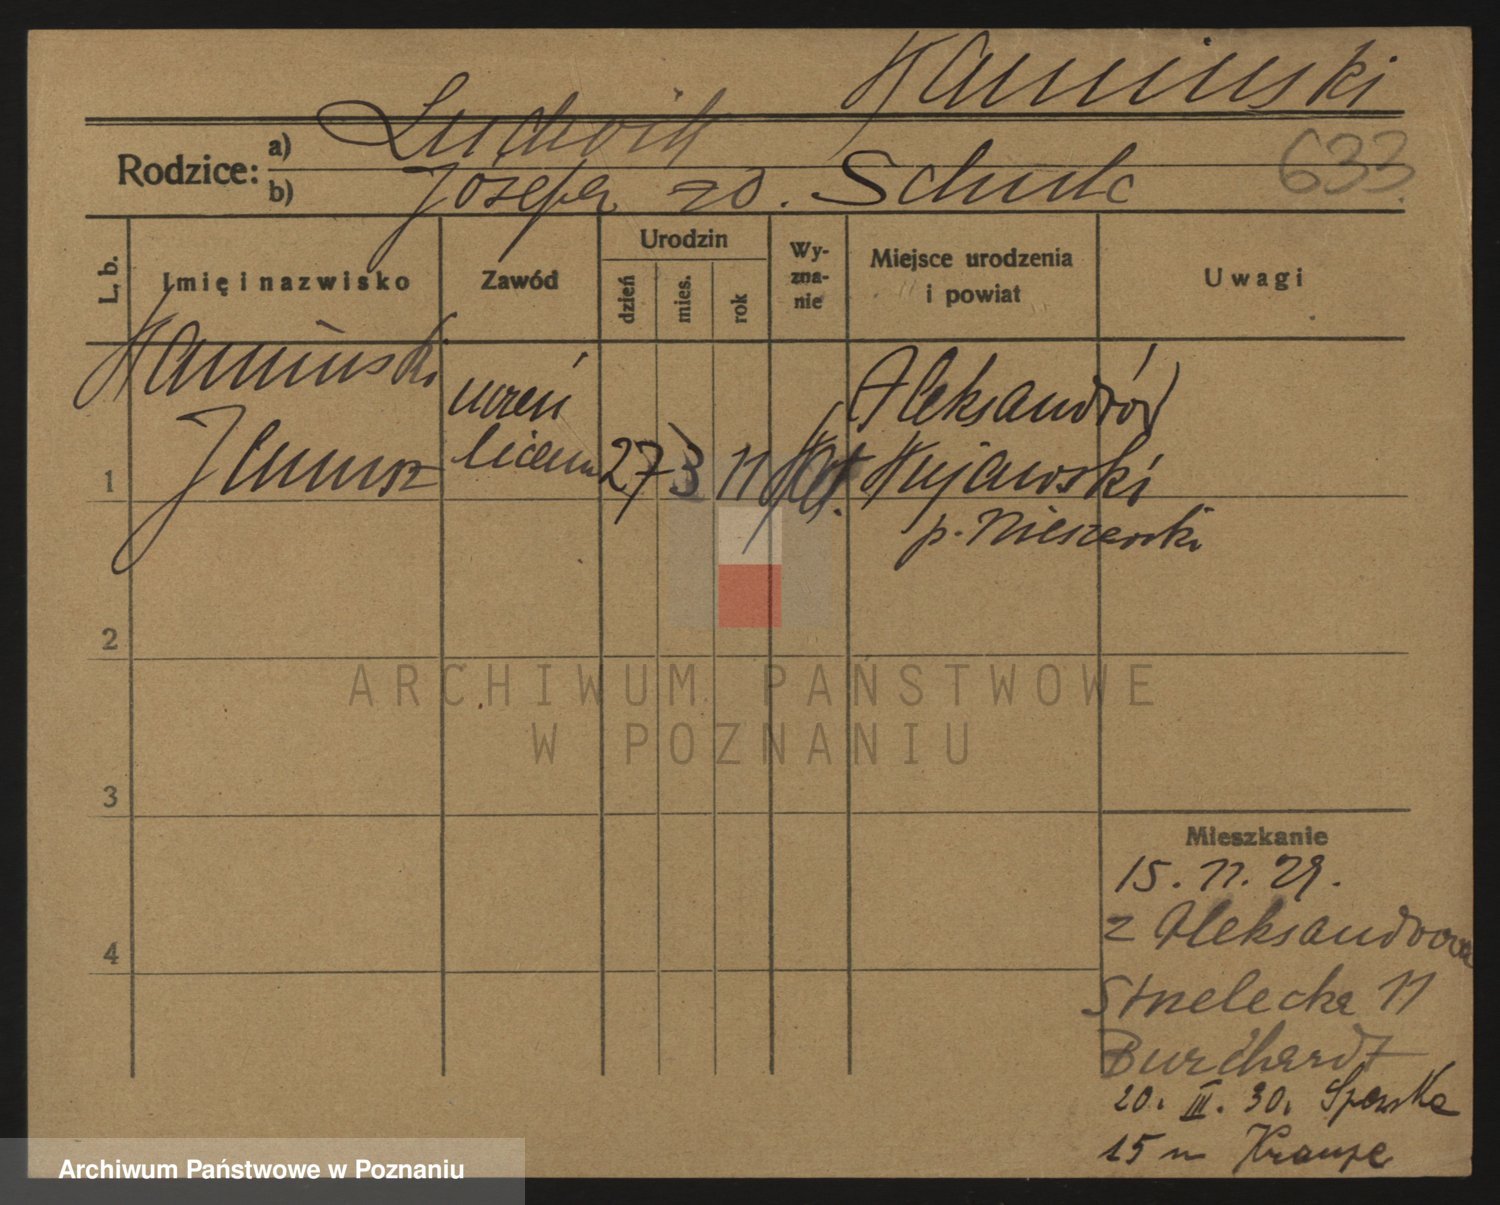 Kamiński
Rodzice: a) Ludwik
b) Józefa zd. Schulc
633
L. b. Imię i nazwisko Zawód Urodzin dzień mies. rok Wy-zna-nie Miejsce urodzenia i powiat Uwagi
1 Kamiński Janusz uczeń liceum 27 3 11 kat. Aleksandrów Kujawski p. Nieszawski
2
ARCHIWUM PAŃSTWOWE
W POZNANIU
3
Mieszkanie
15. 11. 29.
z Aleksandrowa
4
Strzelecka 11
Burchardt
20. III. 30.
15 m Krause
Archiwum Państwowe w Poznaniu